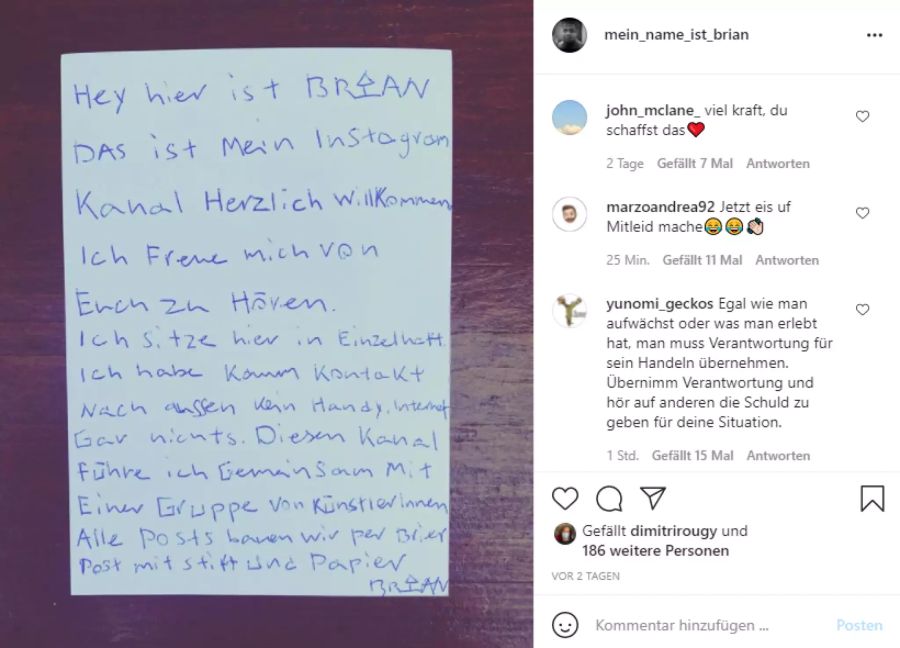 Hey hier ist BRIAN
DAS ist Mein Instagram
Kanal Herzlich Willkommen
Ich Freue mich von
Euch zu Hören.
Ich sitze hier in Einzelhaft.
Ich habe Kaum Kontakt
Nach aussen Kein Handy, Internet
Gar nichts. Diesen Kanal
Führe ich Gemeinsam Mit
Einer Gruppe von Künstlerinnen
Alle Posts bauen wir per Brief
Post mit stift und Papier
BRIAN
mein_name_ist_brian
john_mclane_ viel kraft, du
schaffst das❤️
2 Tage Gefällt 7 Mal Antworten
marzoandrea92 Jetzt eis uf
Mitleid mache😂😂👏🏻
25 Min. Gefällt 11 Mal Antworten
yunomi_geckos Egal wie man
aufwächst oder was man erlebt
hat, man muss Verantwortung für
sein Handeln übernehmen.
Übernimm Verantwortung und
hör auf anderen die Schuld zu
geben für deine Situation.
1 Std. Gefällt 15 Mal Antworten
Gefällt dimitrirougy und
186 weitere Personen
VOR 2 TAGEN
Kommentar hinzufügen ... Posten